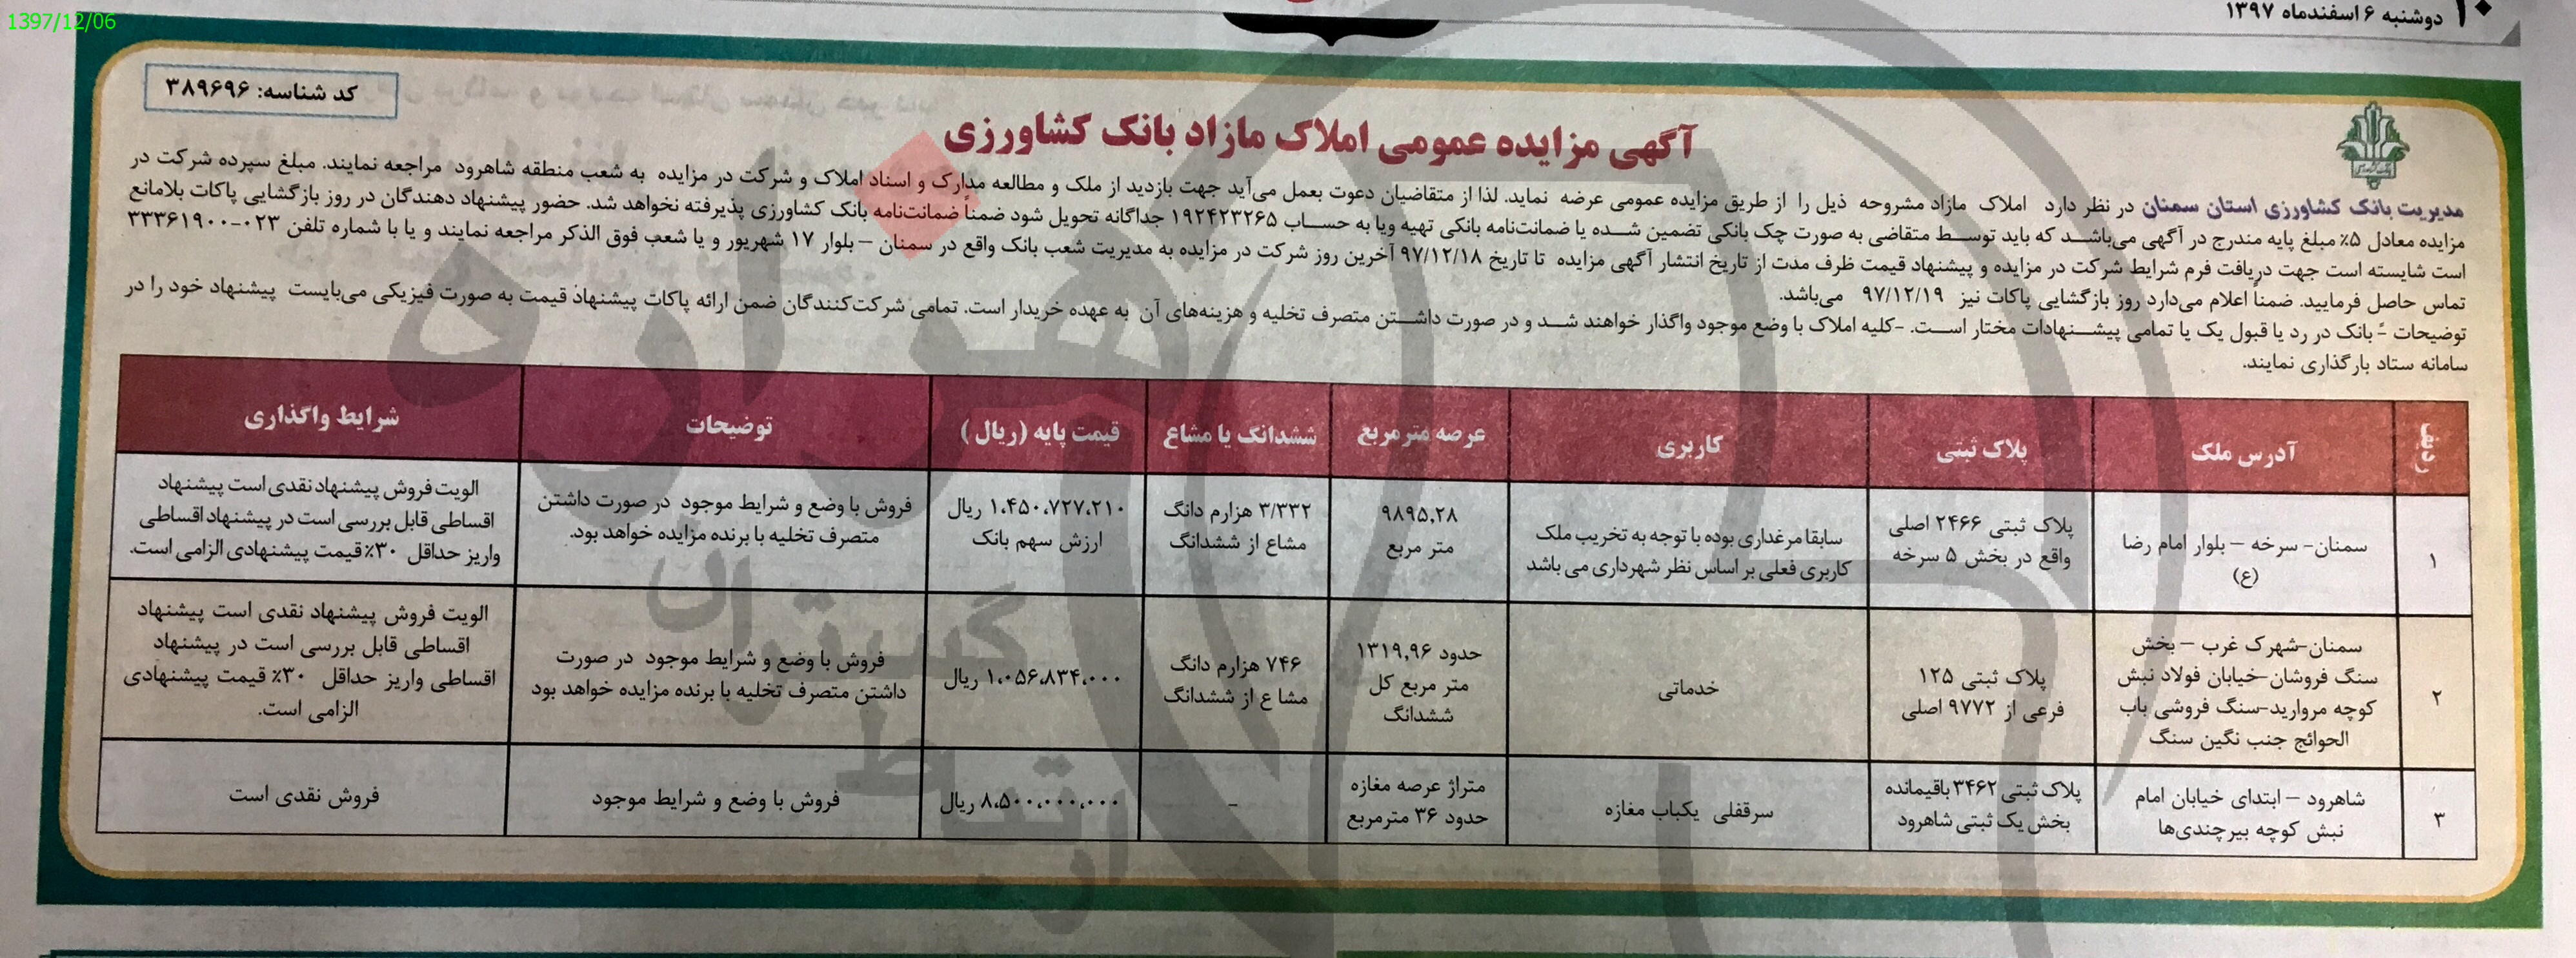 1397/12/06
۱۰ دوشنبه ۶ اسفندماه ۱۳۹۷
کد شناسه: ۳۸۹۶۹۶
آگهی مزایده عمومی املاک مازاد بانک کشاورزی
مدیریت بانک کشاورزی استان سمنان در نظر دارد املاک مازاد مشروحه ذیل را از طریق مزایده عمومی عرضه نماید. لذا از متقاضیان دعوت بعمل می‌آید جهت بازدید از ملک و مطالعه مدارک و اسناد املاک و شرکت در مزایده به شعب منطقه شاهرود مراجعه نمایند. مبلغ سپرده شرکت در
مزایده معادل ۵٪ مبلغ پایه مندرج در آگهی می‌باشد که باید توسط متقاضی به صورت چک بانکی تضمین شده یا ضمانت‌نامه بانکی تهیه ویا به حساب ۱۹۲۴۲۳۲۶۵ جداگانه تحویل شود ضمناً ضمانت‌نامه بانک کشاورزی پذیرفته نخواهد شد. حضور پیشنهاد دهندگان در روز بازگشایی پاکات بلامانع
است شایسته است جهت دریافت فرم شرایط شرکت در مزایده و پیشنهاد قیمت ظرف مدت از تاریخ انتشار آگهی مزایده تا تاریخ ۹۷/۱۲/۱۸ آخرین روز شرکت در مزایده به مدیریت شعب بانک واقع در سمنان – بلوار ۱۷ شهریور و یا شعب فوق الذکر مراجعه نمایند و یا با شماره تلفن ۰۲۳-۳۳۳۶۱۹۰۰
تماس حاصل فرمایید. ضمناً اعلام می‌دارد روز بازگشایی پاکات نیز ۹۷/۱۲/۱۹ می‌باشد.
توضیحات – بانک در رد یا قبول یک یا تمامی پیشنهادات مختار است. -کلیه املاک با وضع موجود واگذار خواهند شد و در صورت داشتن متصرف تخلیه و هزینه‌های آن به عهده خریدار است. تمامی شرکت‌کنندگان ضمن ارائه پاکات پیشنهاد قیمت به صورت فیزیکی می‌بایست پیشنهاد خود را در
سامانه ستاد بارگذاری نمایند.
ردیف آدرس ملک پلاک ثبتی کاربری عرصه مترمربع ششدانگ یا مشاع قیمت پایه (ریال) توضیحات شرایط واگذاری
۱
سمنان- سرخه – بلوار امام رضا
(ع)
پلاک ثبتی ۲۴۶۶ اصلی
واقع در بخش ۵ سرخه
سابقا مرغداری بوده با توجه به تخریب ملک
کاربری فعلی بر اساس نظر شهرداری می باشد
۹۸۹۵,۲۸
متر مربع
۳/۳۳۲ هزارم دانگ
مشاع از ششدانگ
۱،۴۵۰،۷۲۷،۲۱۰ ریال
ارزش سهم بانک
فروش با وضع و شرایط موجود در صورت داشتن
متصرف تخلیه با برنده مزایده خواهد بود.
الویت فروش پیشنهاد نقدی است پیشنهاد
اقساطی قابل بررسی است در پیشنهاد اقساطی
واریز حداقل ۳۰٪ قیمت پیشنهادی الزامی است.
۲
سمنان-شهرک غرب – بخش
سنگ فروشان-خیابان فولاد نبش
کوچه مروارید-سنگ فروشی باب
الحوائج جنب نگین سنگ
پلاک ثبتی ۱۲۵
فرعی از ۹۷۷۲ اصلی
خدماتی
حدود ۱۳۱۹,۹۶
متر مربع کل
ششدانگ
۷۴۶ هزارم دانگ
مشا ع از ششدانگ
۱،۰۵۶،۸۳۴،۰۰۰ ریال
فروش با وضع و شرایط موجود در صورت
داشتن متصرف تخلیه با برنده مزایده خواهد بود
الویت فروش پیشنهاد نقدی است پیشنهاد
اقساطی قابل بررسی است در پیشنهاد
اقساطی واریز حداقل ۳۰٪ قیمت پیشنهادی
الزامی است.
۳
شاهرود – ابتدای خیابان امام
نبش کوچه بیرجندی‌ها
پلاک ثبتی ۳۴۶۲ باقیمانده
بخش یک ثبتی شاهرود
سرقفلی یکباب مغازه
متراژ عرصه مغازه
حدود ۳۶ مترمربع
–
۸،۵۰۰،۰۰۰،۰۰۰ ریال
فروش با وضع و شرایط موجود
فروش نقدی است